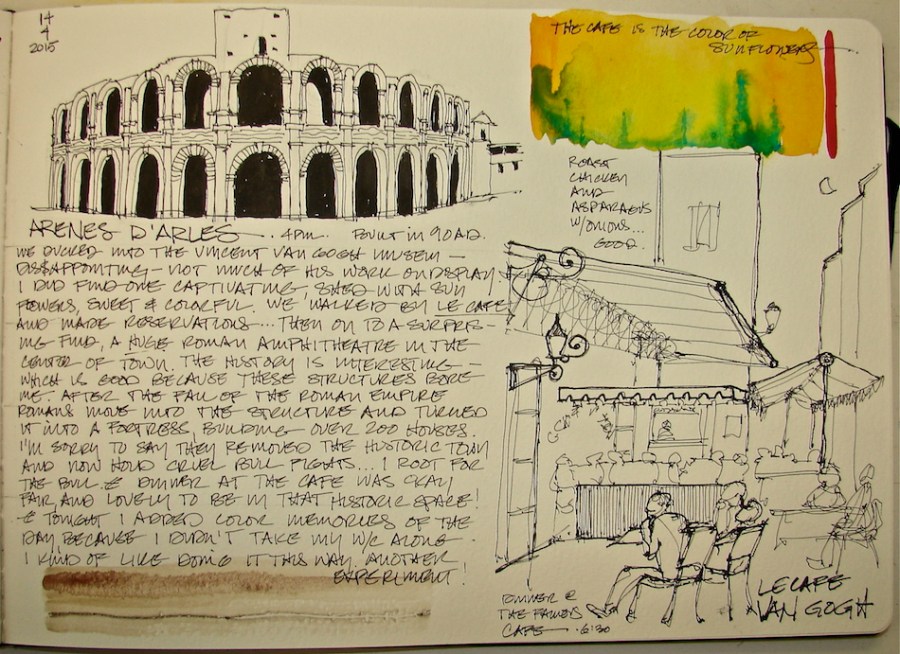 14
4
2015
THE CAFE IS THE COLOR OF
SUNFLOWERS
ROAST
CHICKEN
AND
ASPARAGUS
W/ONIONS...
GOOD.
ARENES D'ARLES ... 4PM. BUILT IN 90 A.D.
WE DUCKED INTO THE VINCENT VAN GOGH MUSEUM —
DISSAPPOINTING — NOT MUCH OF HIS WORK ON DISPLAY
I DID FIND ONE CAPTIVATING, SHED WITH SUN
FLOWERS, SWEET & COLORFUL. WE WALKED BY LE CAFE
AND MADE RESERVATIONS... THEN ON TO A SURPRIS-
ING FIND, A HUGE ROMAN AMPHITHEATRE IN THE
CENTER OF TOWN. THE HISTORY IS INTERESTING —
WHICH IS GOOD BECAUSE THESE STRUCTURES BORE
ME. AFTER THE FALL OF THE ROMAN EMPIRE
ROMANS MOVE INTO THE STRUCTURE AND TURNED
IT INTO A FORTRESS, BUILDING OVER 200 HOUSES.
I'M SORRY TO SAY THEY REMOVED THE HISTORIC TOWN
AND NOW HOLD CRUEL BULL FIGHTS... I ROOT FOR
THE BULL. & DINNER AT THE CAFE WAS OKAY
FAIR, AND LOVELY TO BE IN THAT HISTORIC SPACE!
& TONIGHT I ADDED COLOR MEMORIES OF THE
DAY BECAUSE I DIDN'T TAKE MY W/C ALONG.
I KIND OF LIKE DOING IT THIS WAY, ANOTHER
EXPERIMENT!
DINNER @
THE FAMOUS
CAFE — 6:30
LE CAFE
VAN GOGH